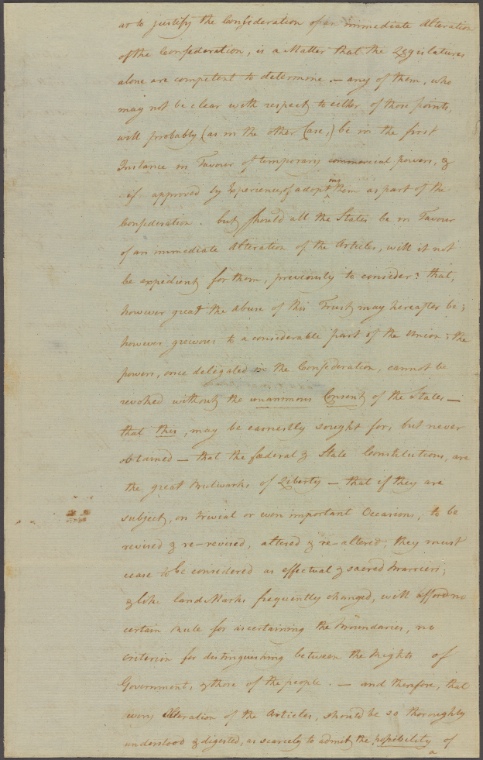 as to justify the Confederation of an immediate Alteration
of the Confederation, is a Matter that the Legislatures
alone are competent to determine. — any of them, who
may not be clear with respect to either of those points,
will probably (as in the other Case,) be in the first
Instance in Favour of temporary commercial powers, &
if approved by Experience, of adopting them as part of the
Confederation. but, should all the States be in Favour
of an immediate Alteration of the Articles, will it not
be expedient for them, previously to consider? that,
however great the abuse of this Trust may hereafter be;
however grievous to a considerable part of the Union: the
powers, once delegated in the Confederation, cannot be
revoked without the unanimous Consent of the States —
that this, may be earnestly sought for, but never
obtained — that the federal & State Constitutions, are
the great Bulwarks of Liberty — that if they are
subject, on trivial or even important Occasions, to be
revised & re-revised, altered & re-altered, they must
cease to be considered as effectual & sacred Barriers;
& like land Marks frequently changed, will afford no
certain Rule for ascertaining the Boundaries, no
criterion for distinguishing between the Rights of
Government, & those of the people. — and therefore, that
every Alteration of the Articles, should be so thoroughly
understood & digested, as scarcely to admit the possibility of
a